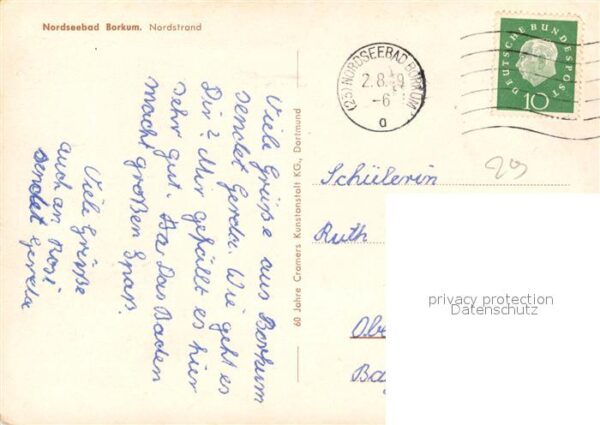 Nordseebad Borkum. Nordstrand
Viele Grüße aus Borkum
sendet Gerda. Wie geht es
Dir? Mir gefällt es hier
sehr gut. Das Baden
macht großen Spaß.
Viele Grüße
auch an Rosi
sendet Gerda
60 Jahre Cramers Kunstanstalt KG., Dortmund
(23) NORDSEEBAD BORKUM
2.8.
-6
a
DEUTSCHE BUNDESPOST
10
29
Schülerin
Ruth
Obe
Ba
privacy protection
Datenschutz